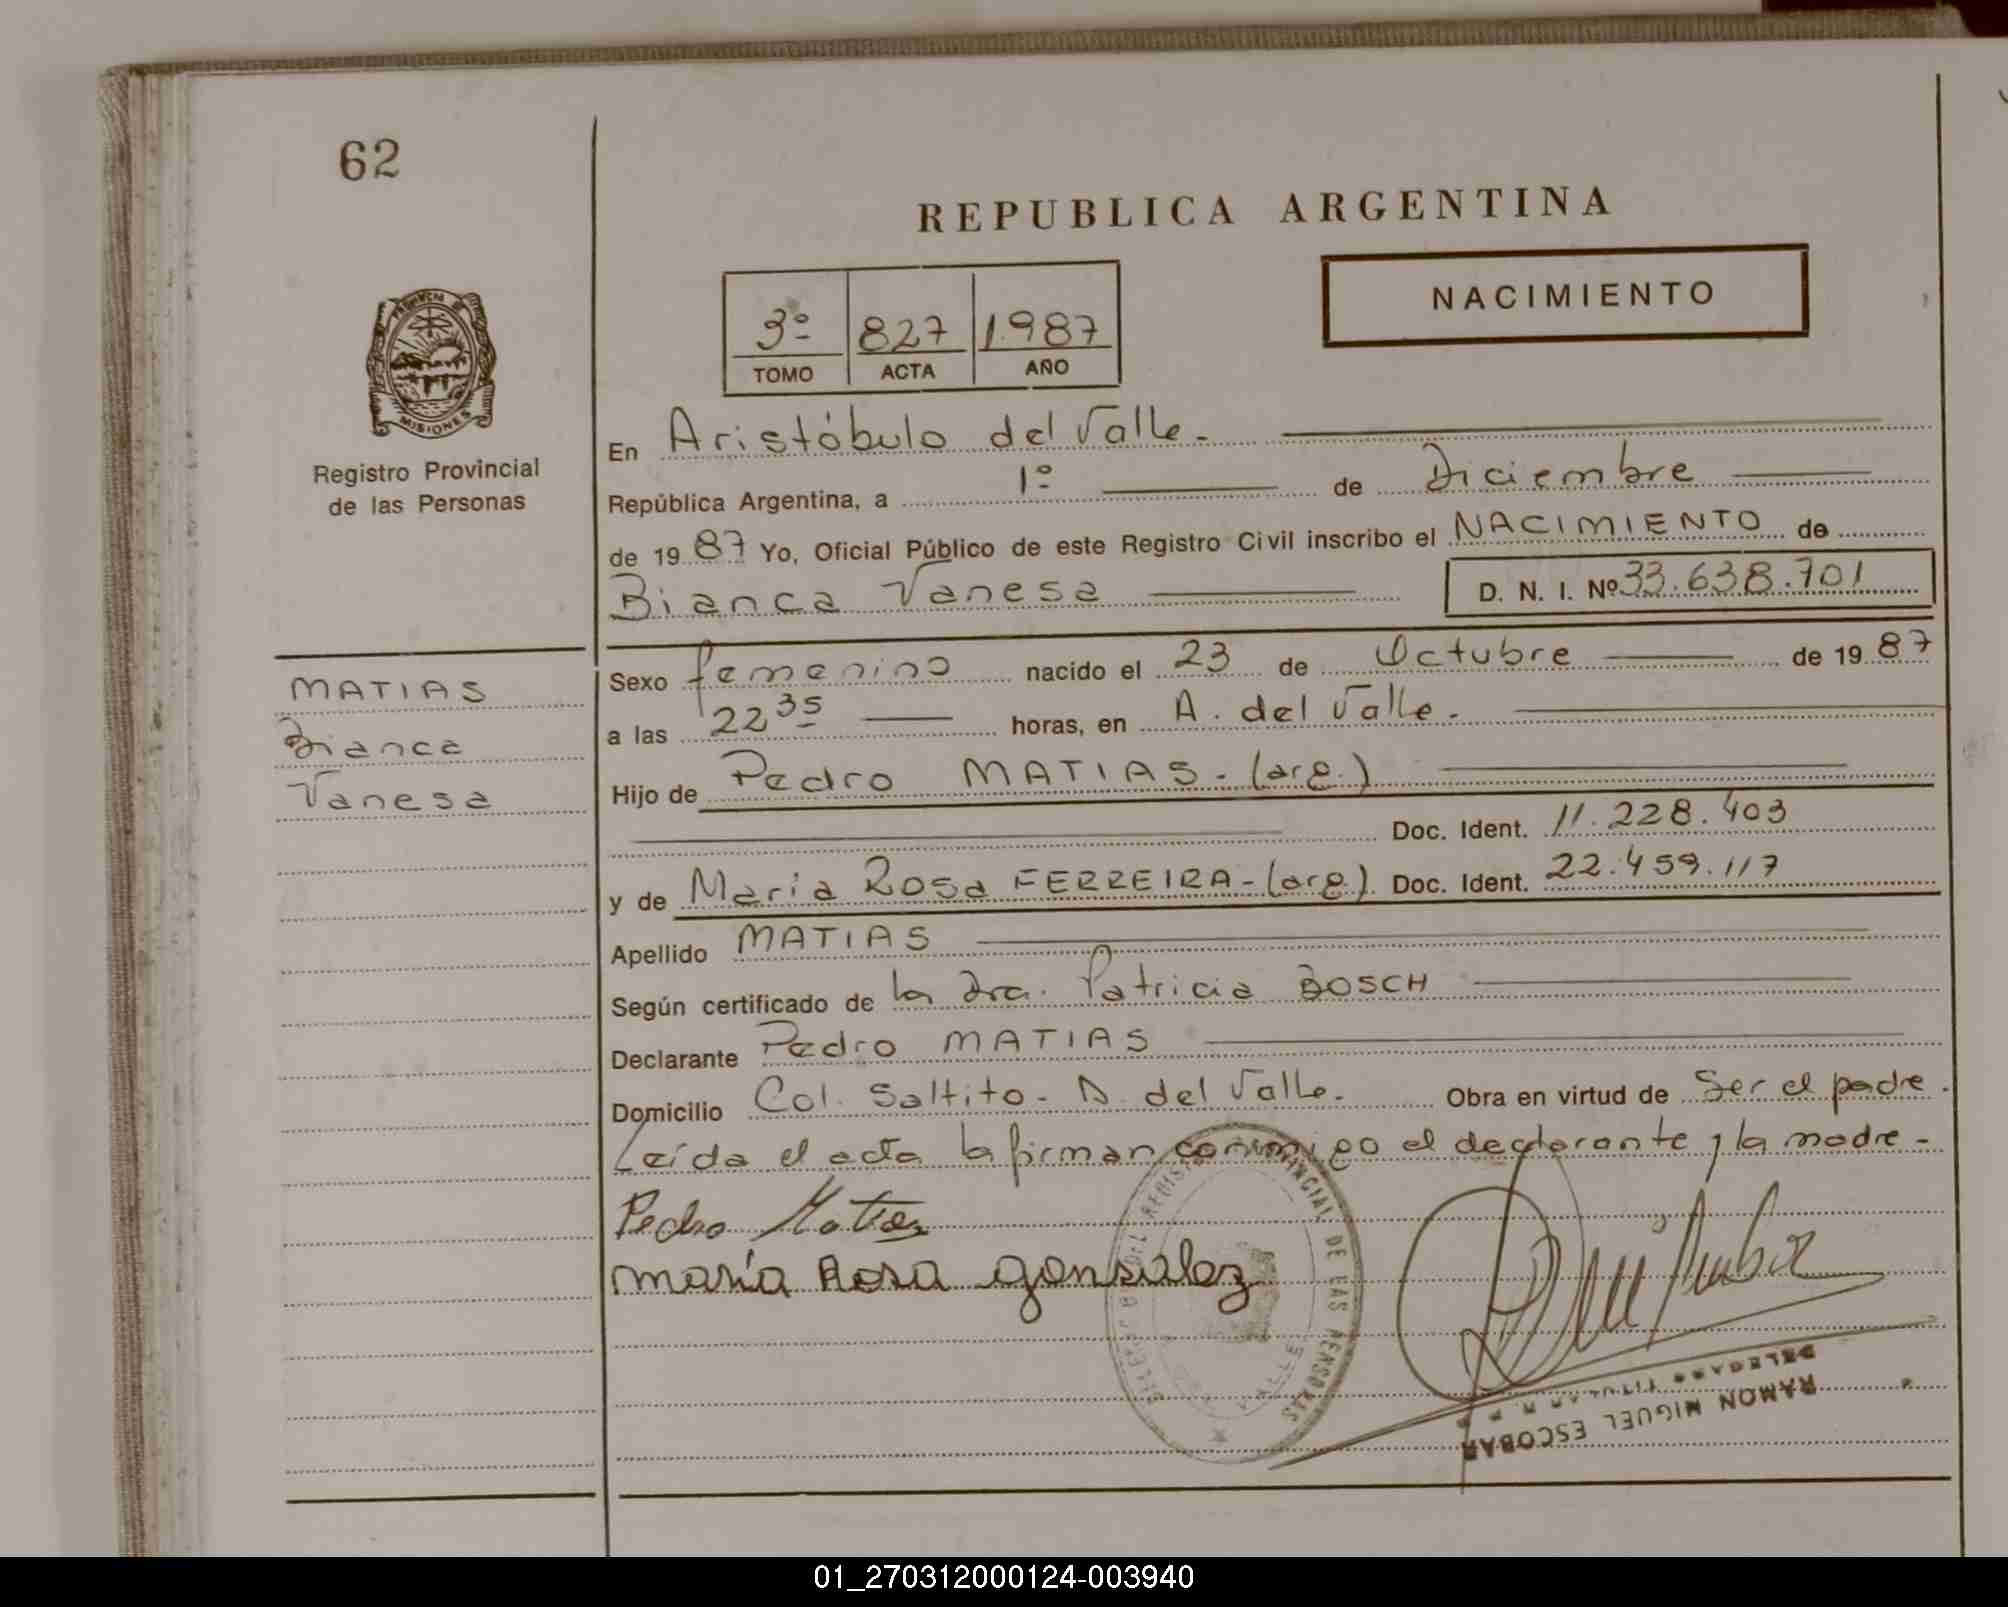 62
REPUBLICA ARGENTINA
NACIMIENTO
3º 827 1.987
TOMO ACTA AÑO
PROVINCIA DE
MISIONES
Registro Provincial
de las Personas
En Aristóbulo del Valle.
República Argentina, a 1º de Diciembre
de 1987 Yo, Oficial Público de este Registro Civil inscribo el NACIMIENTO de
Bianca Vanesa D. N. I. Nº 33.638.701
MATIAS
Bianca
Vanesa
Sexo femenino nacido el 23 de Octubre de 1987
a las 22 35 horas, en A. del Valle.
Hijo de Pedro MATIAS - (arg.)
Doc. Ident. 11.228.403
y de María Rosa FERREIRA - (arg.) Doc. Ident. 22.459.117
Apellido MATIAS
Según certificado de la Dra. Patricia BOSCH
Declarante Pedro MATIAS
Domicilio Col. Saltito - A. del Valle. Obra en virtud de Ser el padre.
Leída el acta la firman conmigo el declarante y la madre -
Pedro Matias
maría Rosa gonsalez
REGISTRO PROVINCIAL DE LAS PERSONAS
VALLE
RAMON MIGUEL ESCOBAR
DELEGADO TITULAR
01_270312000124-003940